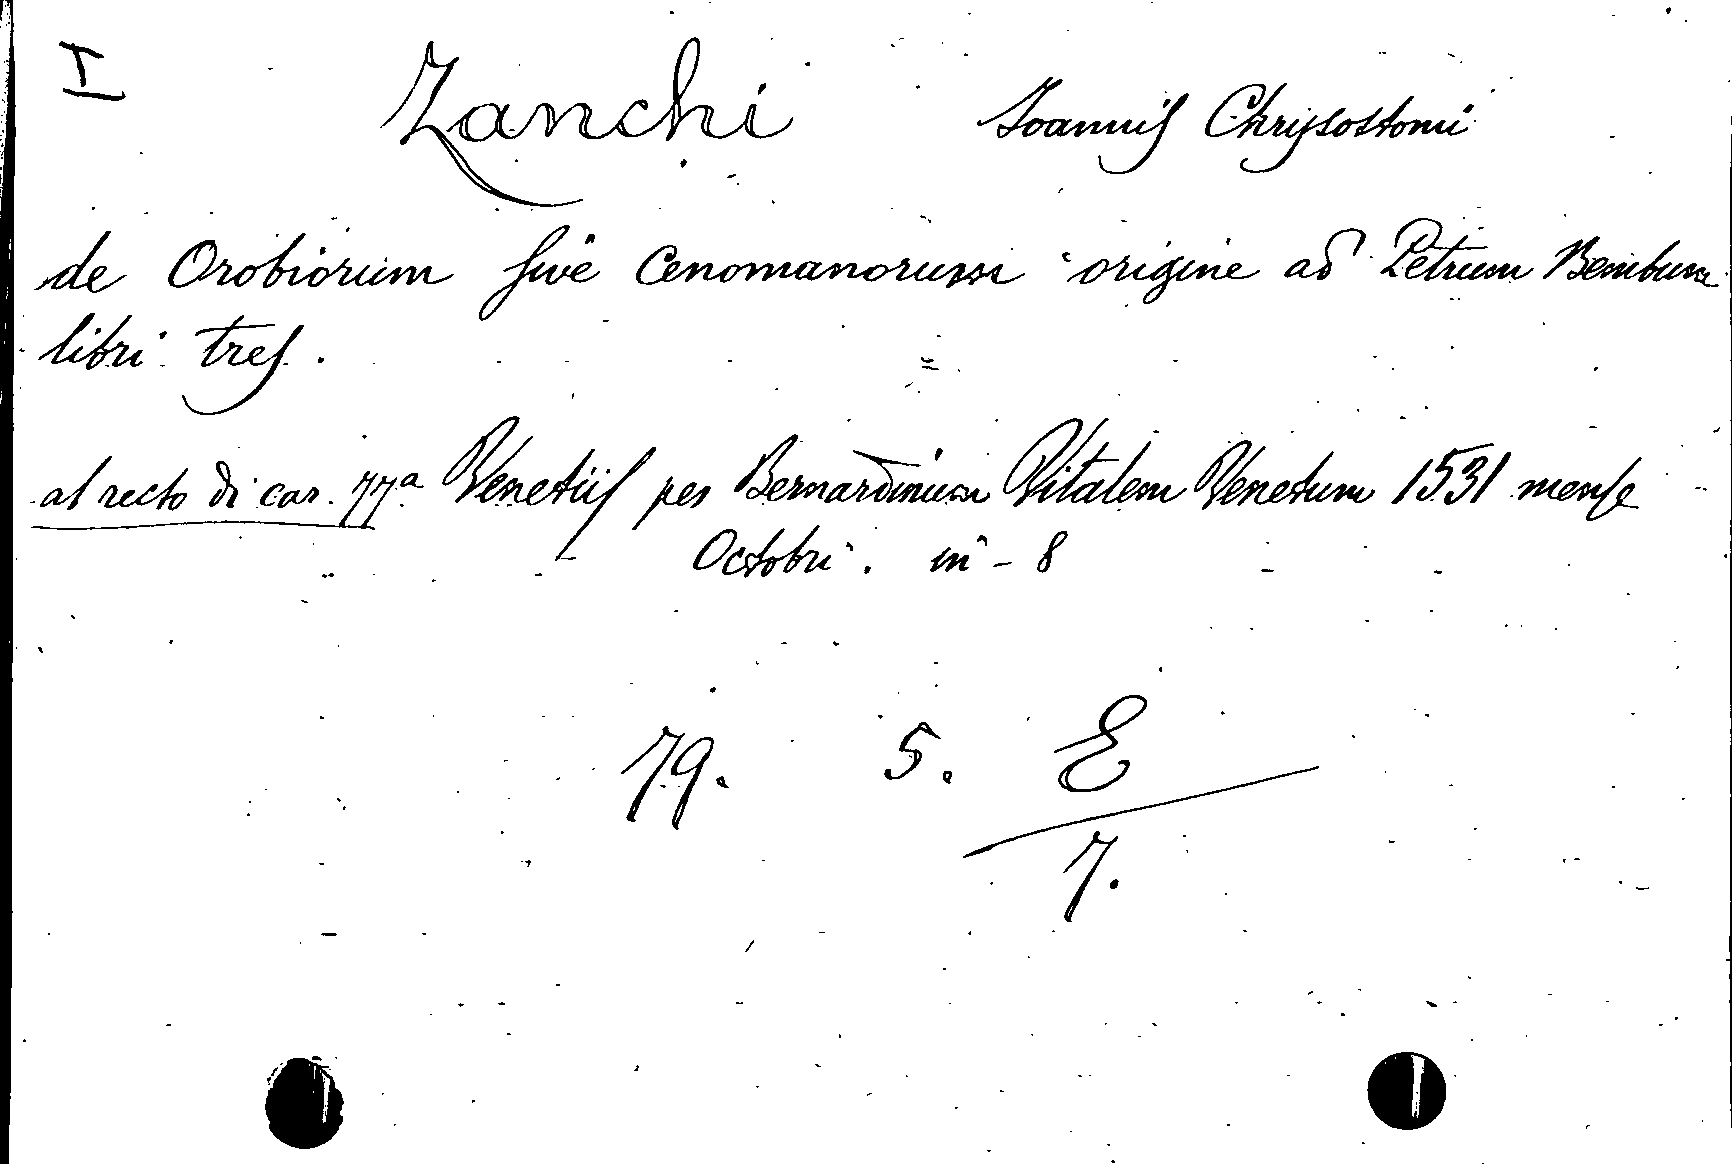 I
Zanchi Ioannis Chrysostomi
de Orobiorum sive Cenomanorum origine ad Petrum Bembum
libri tres.
al recto di car. 77ª Venetiis per Bernardinum Vitalem Venetum 1531 mense
Octobri. in-8
79. 5. E
7.